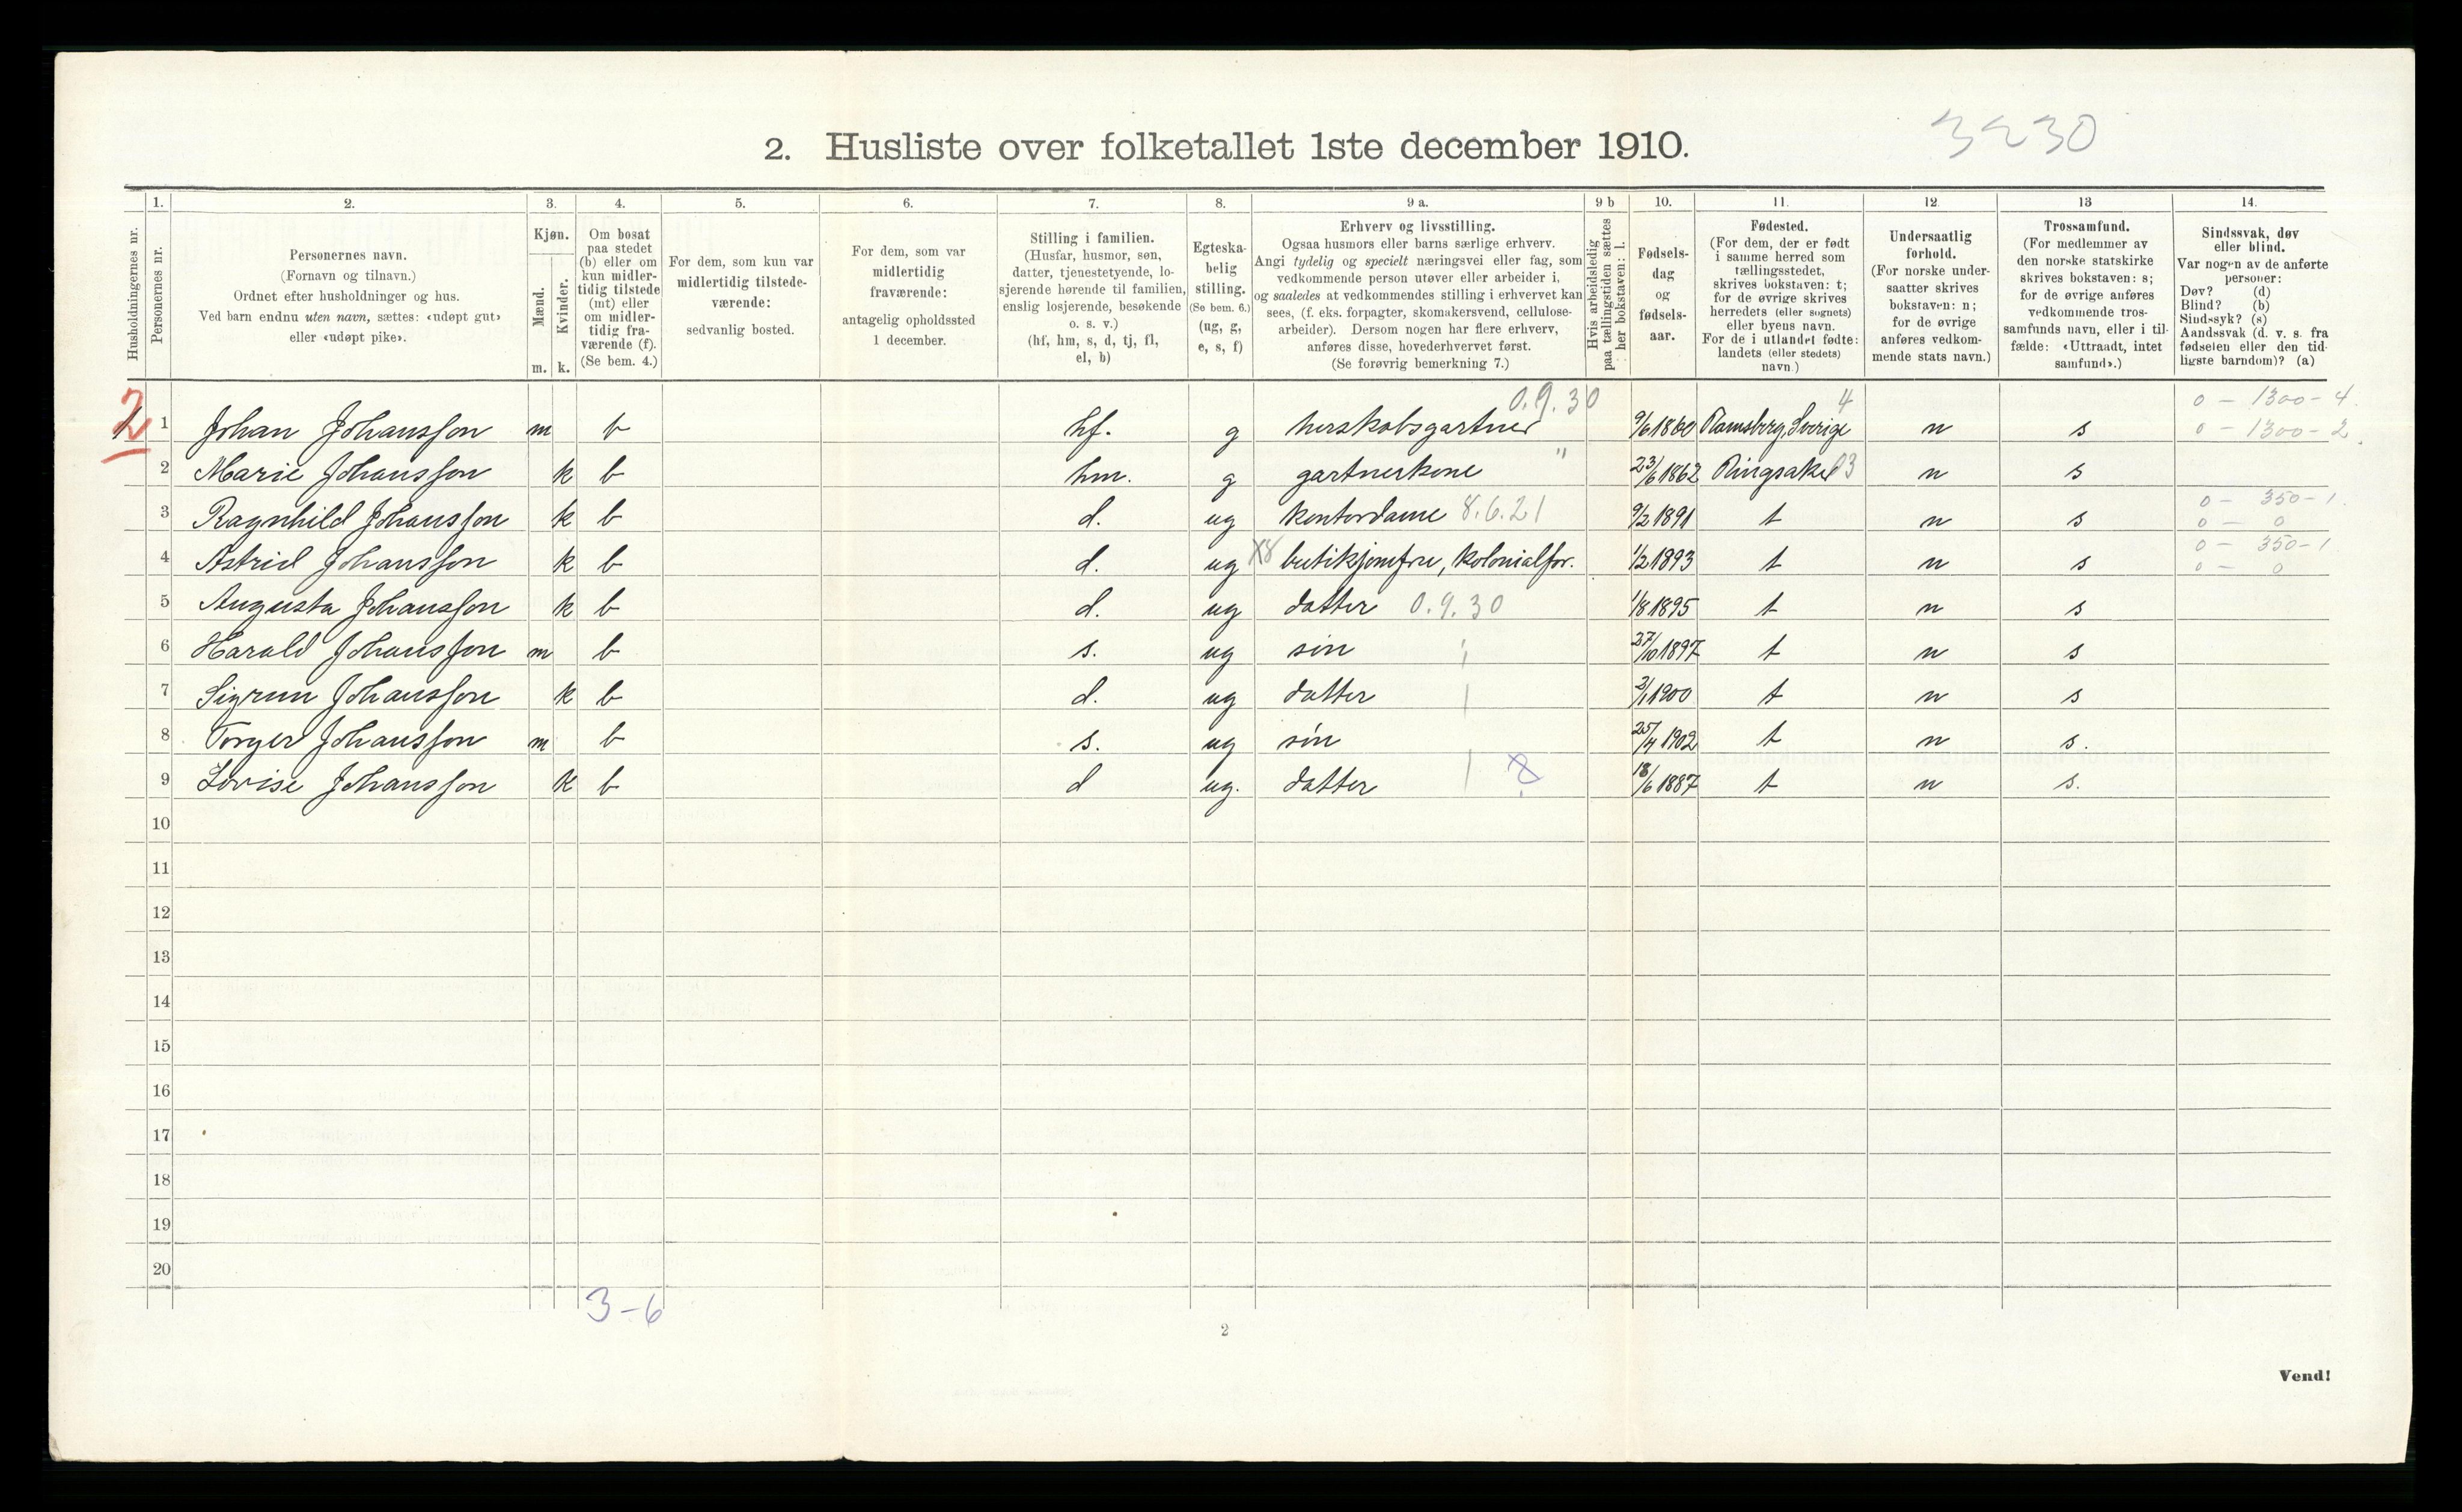 3230
2. Husliste over folketallet 1ste december 1910.
Husholdningernes nr.
1. Personernes nr.
2. Personernes navn.
(Fornavn og tilnavn.)
Ordnet efter husholdninger og hus.
Ved barn endnu uten navn, sættes: «udøpt gut»
eller «udøpt pike».
3. Kjøn.
Mænd. m.
Kvinder. k.
4. Om bosat
paa stedet
(b) eller om
kun midler-
tidig tilstede
(mt) eller
om midler-
tidig fra-
værende (f).
(Se bem. 4.)
5. For dem, som kun var
midlertidig tilstede-
værende:
sedvanlig bosted.
6. For dem, som var
midlertidig
fraværende:
antagelig opholdssted
1 december.
7. Stilling i familien.
(Husfar, husmor, søn,
datter, tjenestetyende, lo-
sjerende hørende til familien,
enslig losjerende, besøkende
o. s. v.)
(hf, hm, s, d, tj, fl,
el, b)
8. Egteska-
belig
stilling.
(Se bem. 6.)
(ug, g,
e, s, f)
9 a. Erhverv og livsstilling.
Ogsaa husmors eller barns særlige erhverv.
Angi tydelig og specielt næringsvei eller fag, som
vedkommende person utøver eller arbeider i,
og saaledes at vedkommendes stilling i erhvervet kan
sees, (f. eks. forpagter, skomakersvend, cellulose-
arbeider). Dersom nogen har flere erhverv,
anføres disse, hovederhvervet først.
(Se forøvrig bemerkning 7.)
9 b Hvis arbeidsledig
paa tællingstiden sættes
her bokstaven: l.
10. Fødsels-
dag
og
fødsels-
aar.
11. Fødested.
(For dem, der er født
i samme herred som
tællingsstedet,
skrives bokstaven: t;
for de øvrige skrives
herredets (eller sognets)
eller byens navn.
For de i utlandet fødte:
landets (eller stedets)
navn.)
12. Undersaatlig
forhold.
(For norske under-
saatter skrives
bokstaven: n;
for de øvrige
anføres vedkom-
mende stats navn.)
13 Trossamfund.
(For medlemmer av
den norske statskirke
skrives bokstaven: s;
for de øvrige anføres
vedkommende tros-
samfunds navn, eller i til-
fælde: «Uttraadt, intet
samfund».)
14. Sindssvak, døv
eller blind.
Var nogen av de anførte
personer:
Døv? (d)
Blind? (b)
Sindssyk? (s)
Aandssvak (d. v. s. fra
fødselen eller den tid-
ligste barndom)? (a)
0.9.30 4 0 - 1300 - 4.
2 1 Johan Johansson m b hf. g herskabsgartner 9/6 1860 Ramsberg, Sverige n s 0 - 1300 - 2.
2 Marie Johansson k b hm. g gartnerkone " 23/6 1862 Ringsaker 03 n s
3 Ragnhild Johansson k b d. ug kontordame 8.6.21 9/2 1891 t n s 0 - 350 - 1 0 - 0
4 Astrid Johansson k b d. ug butikjomfru, kolonialfor. 1/2 1893 t n s 0 - 350 - 1 0 - 0
5 Augusta Johansson k b d. ug datter 0.9.30 1/8 1895 t n s
6 Harald Johansson m b s. ug søn 27/10 1897 t n s
7 Sigrun Johansson k b d. ug datter 2/1 1900 t n s
8 Torger Johansson m b s. ug søn 25/4 1902 t n s.
9 Lovise Johansson k b d ug. datter 18/6 1887 t n s.
10
11
12
13
14
15
16
17
18
19
20
3-6
2
Vend!